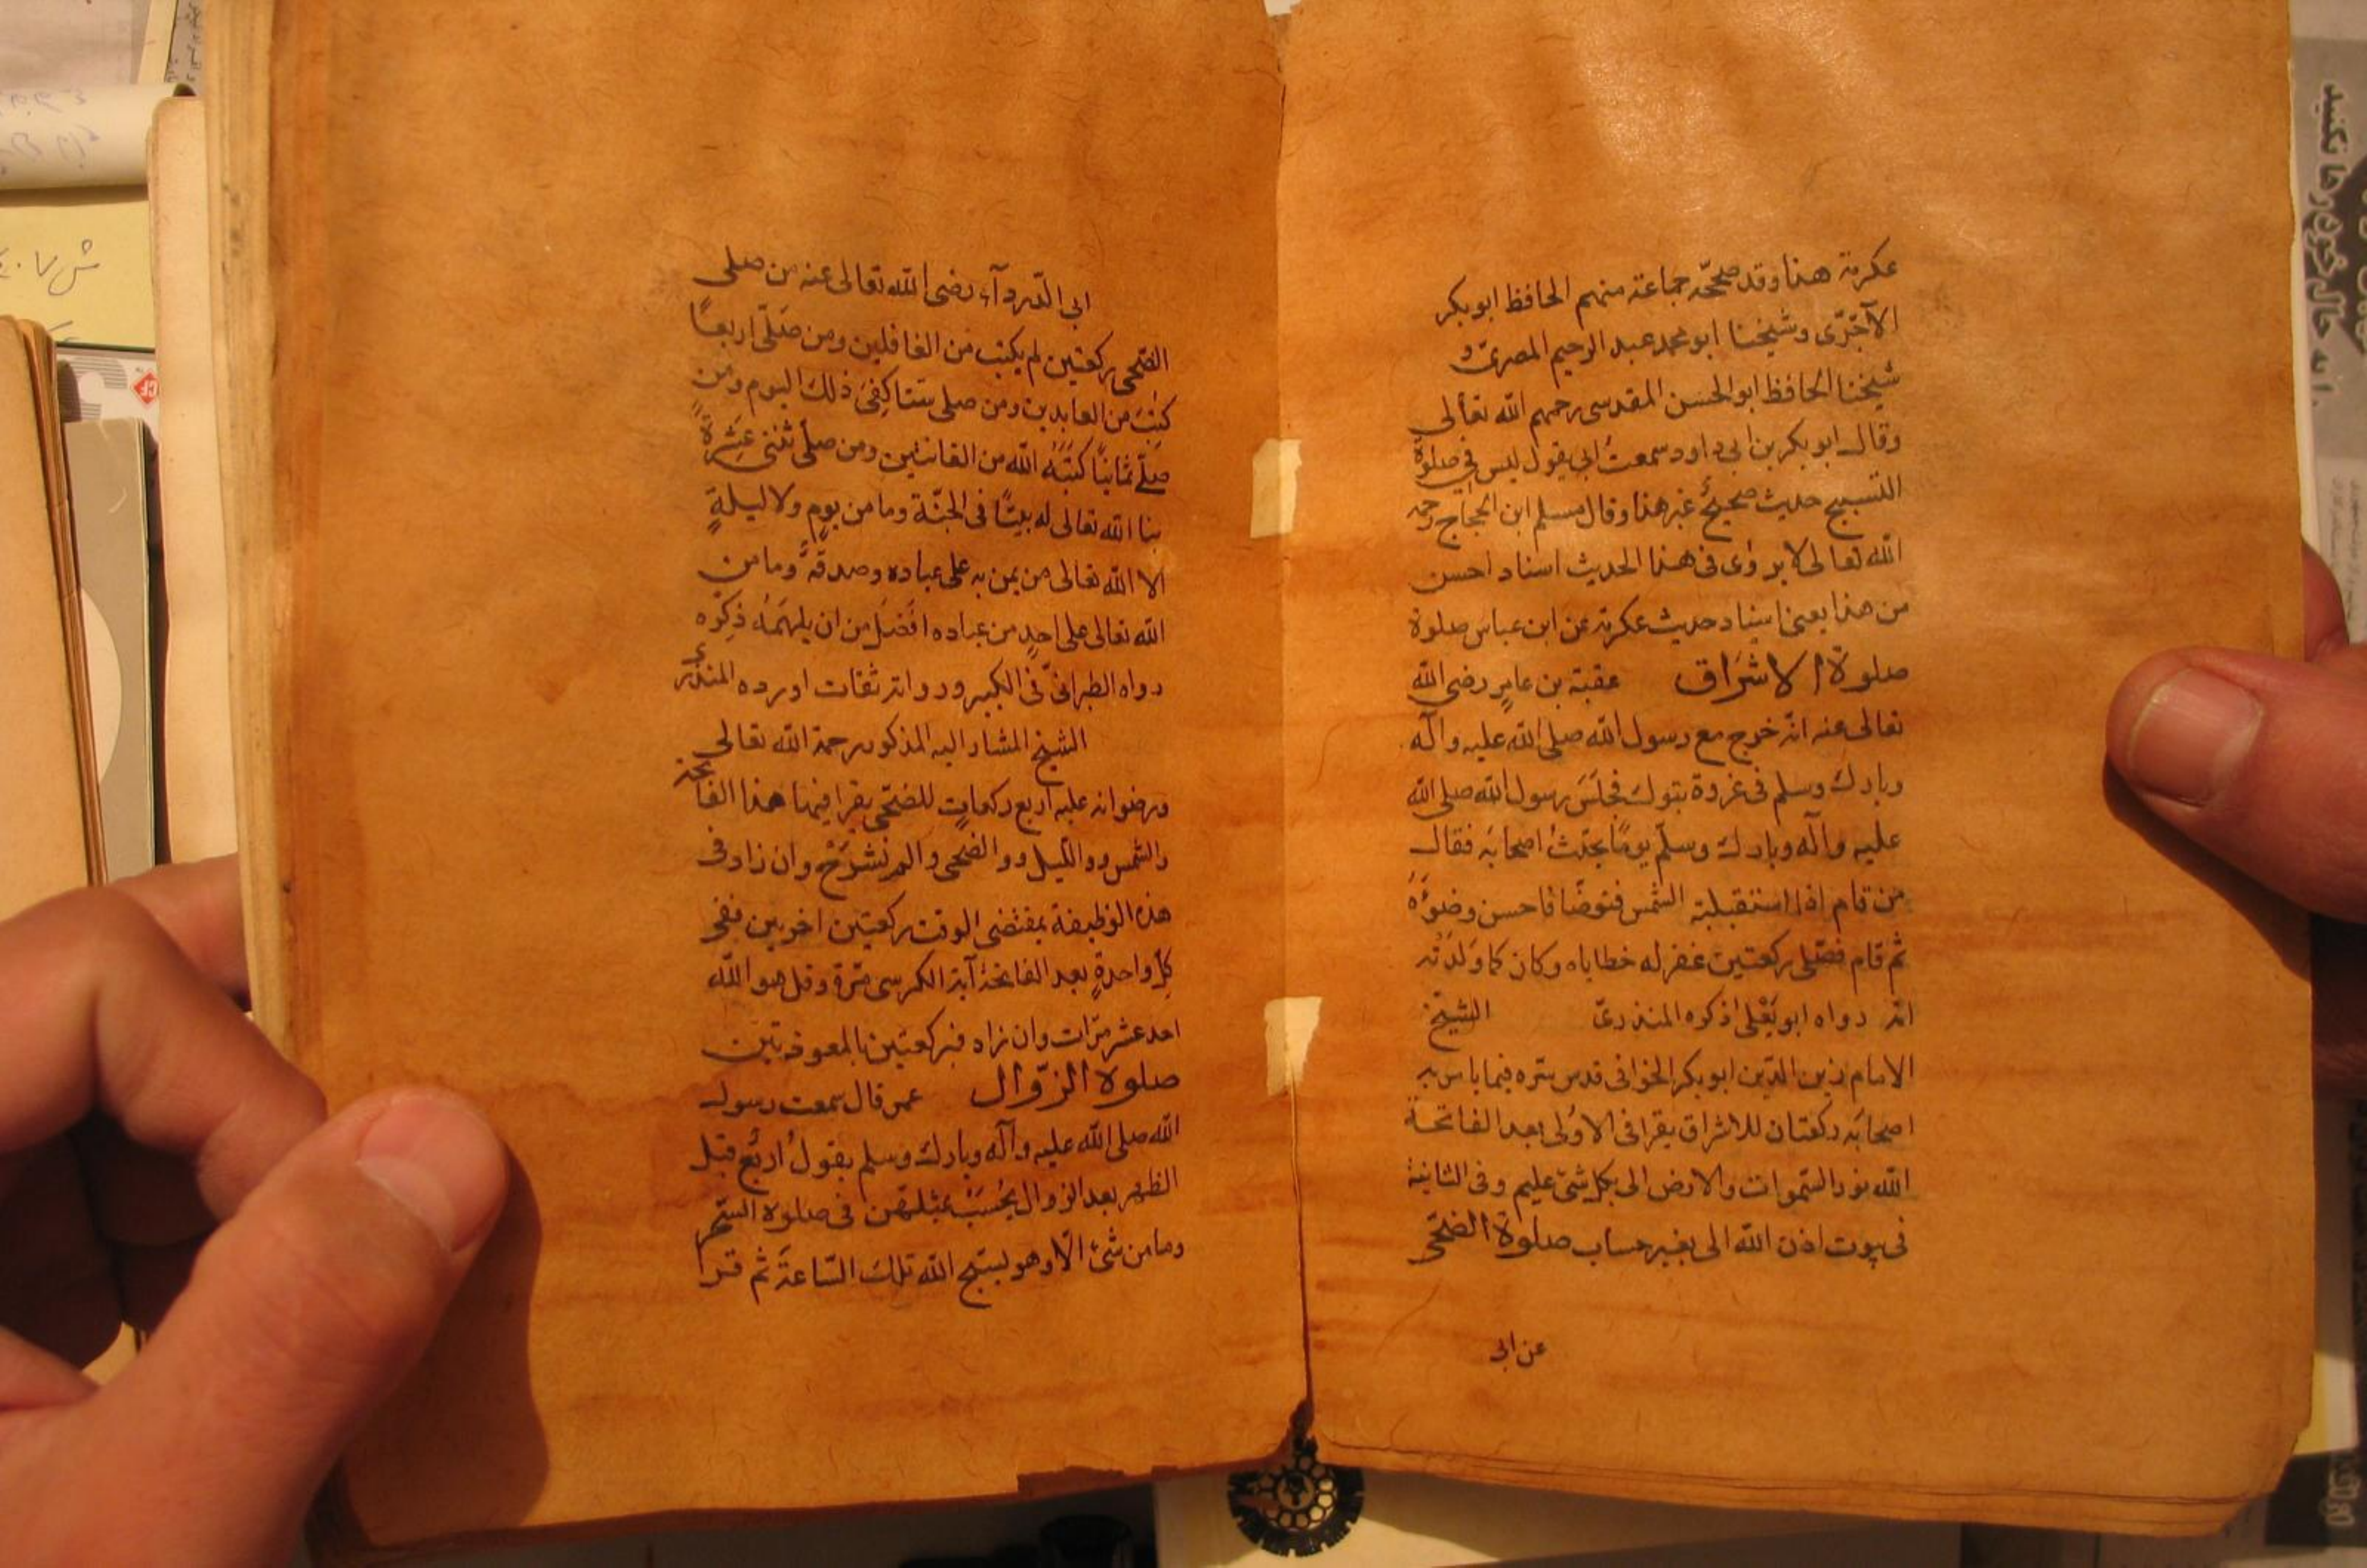 عكرمة هذا وقد صححّه جماعة منهم الحافظ ابوبكر
الآجرّى وشيخنا ابومحمد عبد الرحيم المصرىّ و
شيخنا الحافظ ابوالحسن المقدسى رحمهم الله تعالى
وقال ابوبكر بن ابى داود سمعتُ ابى يقول ليس فى صلوة
التسبيح حديث صحيحُ غير هذا وقال مسلم ابن الحجاج رحمه
الله تعالى لا يروٰى فى هذا الحديث اسناد احسن
من هذا يعنى اسناد حديث عكرمة عن ابن عباس صلوة
صلوة الاشراق عقبة بن عامرٍ رضى الله
تعالى عنه انّه خرج مع رسول الله صلى الله عليه وآله
وبارك وسلم فى غزوة تبوك فجلَسَ رسول الله صلى الله
عليه وآله وبارك وسلّم يومًا يحدّثُ اصحابَه فقال
من قام اذا استقبلته الشّمس فتوضّا فاحسن وضوءَهُ
ثم قام فصَلّى ركعتين غفر له خطاياه وكان كما وَلدَتْه
امّه رواه ابويَعْلى ذكره المنذرىّ الشيخ
الامام زين الدّين ابوبكر الخوافى قدس سّره فيما يامر به
اصحابَه ركعتان للاشراق يقرا فى الاوُلى بعد الفاتحة
الله نور السّموات والارض الى بكل شئ عليم وفى الثانية
فى بيوت اذن الله الى بغير حساب صلوة الضحٰى
عن ابى
ابى الدّرداء رضى الله تعالى عنه من صلى
الضّحى ركعتين لم يكتب من الغافلين ومن صَلّى اربعًا
كتِبَ من العابدين ومن صلى ستا كفِىَ ذلك اليوم ومن
صلّى ثمانيًا كتَبَهُ الله من القانتين ومن صلّى ثنتى عَشِرَةً
بنا الله تعالى له بيتًا فى الجنّة وما من يومٍ ولا ليلةٍ
الا الله تعالى من يمن به على عباده وصدقةً وما من
الله تعالى على احدٍ من عباده افضَلَ من ان يلهمَهُ ذِكرَه
رواه الطبرانىّ فى الكبير ورواته ثقات اورده المنذرى
الشيخ المشار اليه المذكور رحمة الله تعالى
ورضوانه عليه اربع ركعاتٍ للضحّى يقرا فيها هذا الفاتحة
والشمس ووالليل ووالضحى والم نشرَحْ وان زاد فى
هذه الوظيفة بمقتضى الوقت ركعتين اخريين ففى
كلّ واحدةٍ بعد الفاتحة آية الكرسى مّرة وقل هو الله
احد عشر مّرات وان زاد فركعتين بالمعوذتين
صلوة الزّوال عمر قال سمعت رسول
الله صلى الله عليه وآله وبارك وسلم يقولُ اربَع قبل
الظهر بعد الزوال يُحسَبْ بمثلهّن فى صلوة السّحر
وما من شئ الّا وهو يسّبح الله تلك السّاعةَ ثم قرا